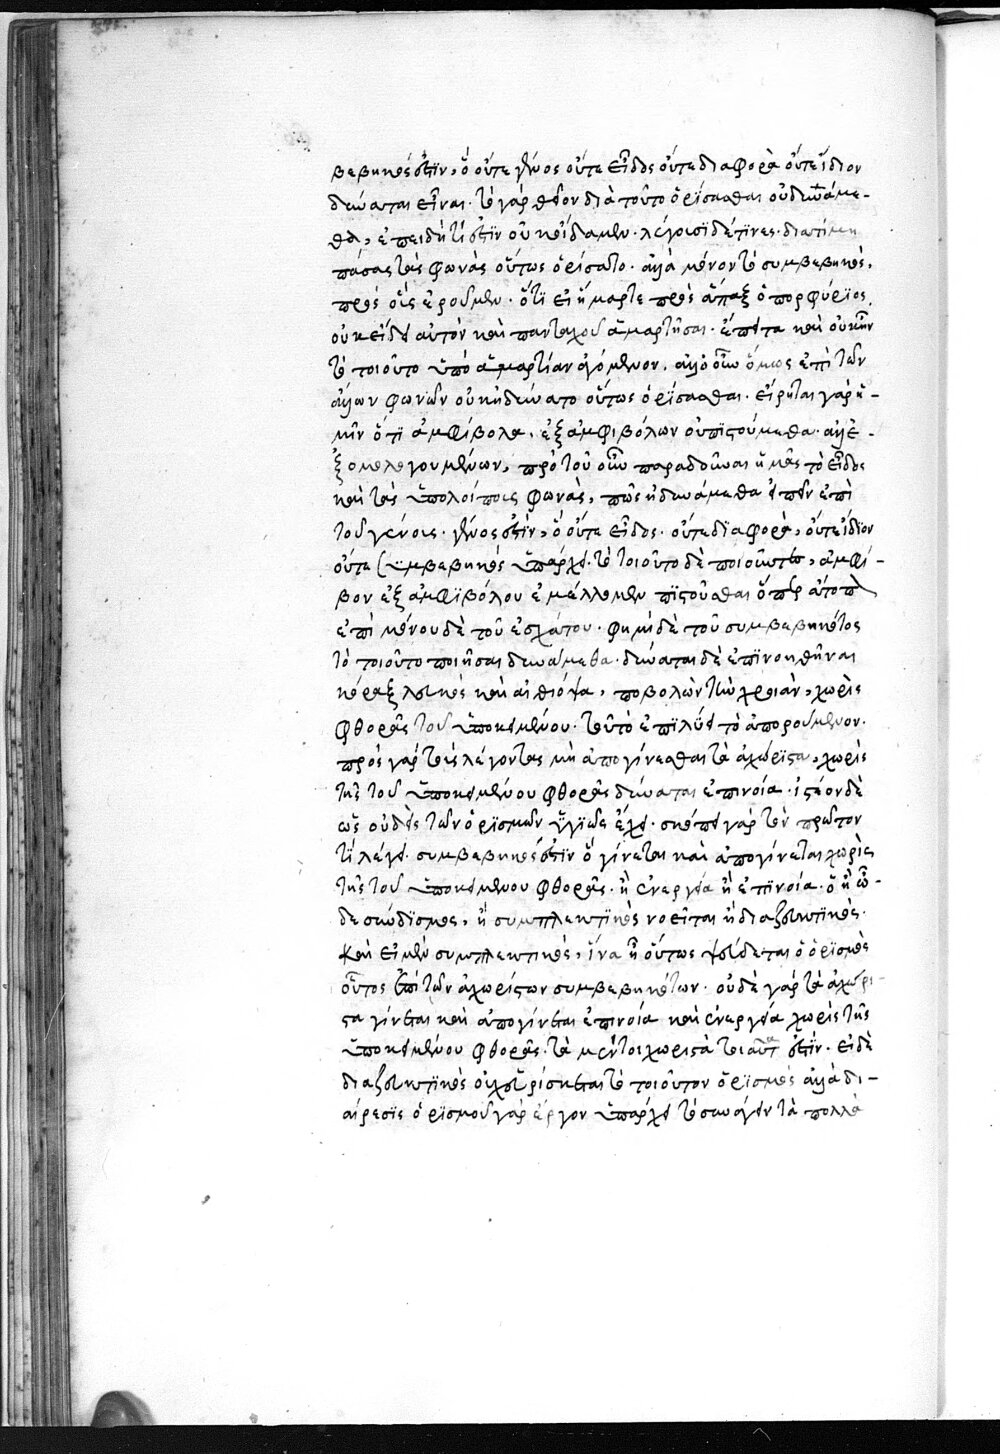 βεβηκός ἐστιν, ὃ οὔτε γένος οὔτε εἶδος οὔτε διαφορὰ οὔτε ἴδιον
δύναται εἶναι· τὸ γὰρ θεῖον διὰ τοῦτο ὁρίσασθαι οὐ δυνάμε-
θα, ἐπειδὴ τί ἐστιν οὐκ οἴδαμεν· λέγουσι δέ τινες· διατί μὴ
πάσας τὰς φωνὰς οὕτως ὁρίσατο· ἀλλὰ μόνον τὸ συμβεβηκός,
πρὸς οὓς ἐροῦμεν· ὅτι εἰ ἥμαρτε πρὸς ἅπαξ ὁ πορφύριος,
οὐκ ἔδει αὐτὸν καὶ πανταχοῦ ἁμαρτῆσαι· ἔπειτα καὶ οὐκ ἦν
τὸ τοιοῦτο ὑπὸ ἁμαρτίαν ἀγόμενον. ἀλλ' οὖν ὅμως ἐπὶ τῶν
ἄλλων φωνῶν οὐκ ἠδύνατο οὕτως ὁρίσασθαι· εἴρηται γὰρ ἡ-
μῖν ὅτι ἀμφίβολα, ἐξ ἀμφιβόλων οὐ πιστούμεθα· ἀλλ' ἐ-
ξ ομολογουμένων, πρὸ τοῦ οὖν παραδοῦναι ἡμᾶς τὸ εἶδος
καὶ τὰς ὑπολοίπους φωνὰς, πῶς ἠδυνάμεθα εἰπεῖν ἐπὶ
τοῦ γένους· γένος ἐστὶν, ὃ οὔτε εἶδος· οὔτε διαφορὰ, οὔτε ἴδιον
οὔτε συμβεβηκός ὑπάρχει· τὸ τοιοῦτο δὲ ποιοῦντες, ἀμφί-
βον ἐξ ἀμφιβόλου ἐμέλλομεν πιστοῦσθαι ὅπερ ἄτοπον
ἐπὶ μόνου δὲ τοῦ ἐσχάτου· φημὶ δὲ τοῦ συμβεβηκότος
τὸ τοιοῦτο ποιῆσαι δυνάμεθα· δύναται δὲ ἐπινοηθῆναι
κόραξ λευκός καὶ αἰθίοψ, ἀποβαλὼν τὴν χροιὰν, χωρὶς
φθορᾶς τοῦ ὑποκειμένου· τοῦτο ἐπιλύει τὸ ἀπορούμενον·
πρὸς γὰρ τοὺς λέγοντας μὴ ἀπογίνεσθαι τὰ ἀχώριστα, χωρὶς
τῆς τοῦ ὑποκειμένου φθορᾶς δύναται ἐπινοίᾳ· ἰστέον δὲ
ὡς οὐδεὶς τῶν ὁρισμῶν ὑγιῶς ἔχει· σκόπει γὰρ τὸν πρῶτον
τί λέγει· συμβεβηκός ἐστιν ὃ γίνεται καὶ ἀπογίνεται χωρὶς
τῆς τοῦ ὑποκειμένου φθορᾶς· ἢ ἐνεργείᾳ ἢ ἐπινοίᾳ· ὁ ἢ ὧ-
δε σύνδεσμος, ἢ συμπλεκτικὸς νοεῖται ἢ διαζευκτικός·
Καὶ εἰ μὲν συμπλεκτικός, ἵνα ᾖ οὕτως ψεύδεται ὁ ὁρισμὸς
οὗτος ἐπὶ τῶν ἀχωρίστων συμβεβηκότων· οὐδὲ γὰρ τὰ ἀχώρι-
στα γίνεται καὶ ἀπογίνεται ἐπινοίᾳ καὶ ἐνεργείᾳ χωρὶς τῆς
ὑποκειμένου φθορᾶς· τὰ μέντοι χωριστὰ τοιαῦτα ἐστὶν· εἰ δὲ
διαζευκτικὸς οὐχ εὑρίσκεται τὸ τοιοῦτον ὁρισμὸς ἀλλὰ δι-
αίρεσις ὁρισμοῦ γὰρ ἔργον ὑπάρχει τὸ συνάγειν τὰ πολλὰ